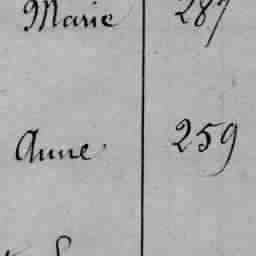 Marie 287
Anne 259